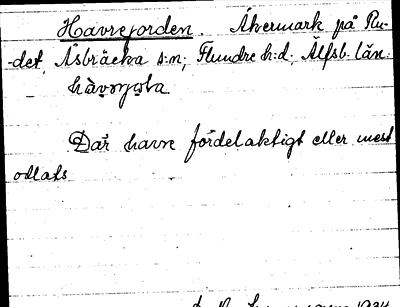 Havrejorden. Åkermark på Ru-
-det, Åsbräcka s:n; Flundre h:d; Älfsb. län.
Där havre fördelaktigt eller mest
odlats
1934